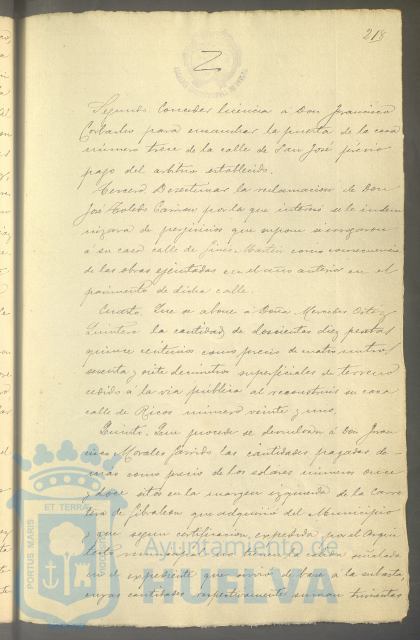 218
Segundo. Conceder licencia á Don Francisco
para ensanchar la puerta de la casa
número trece de la calle de San José previo
pago del arbitrio establecido.
Tercero. Desestimar la reclamación de Don
José Toledo por la que interesó se le indem
nizara de perjuicios que supone se irrogaron
á su casa calle de Ginés Martín como consecuencia
de las obras ejecutadas en el año anterior en el
pavimento de dicha calle.
Cuarto. Que se abone á Doña Mercedes Ortiz
Quintero la cantidad de doscientas diez pesetas
quince céntimos como precio de cuatro metros
y siete decímetros superficiales de terreno
cedido á la vía pública al reconstruir su casa
calle de Ricos número veinte y uno.
Quinto. Que procede se devuelvan á Don Fran
cisco Morales Garrido las cantidades pagadas de
más como precio de los solares números once
y doce sitos en la margen izquierda de la Carre
tera de Gibraleón que adquirió del Municipio
y que según certificación expedida por el Arqui
tecto
en el expediente que sirvió de base á la subasta,
cuyas cantidades respectivamente suman trescientas
PORTUS MARIS
ET TERRAE
CUSTODIA
Ayuntamiento de
HUELVA